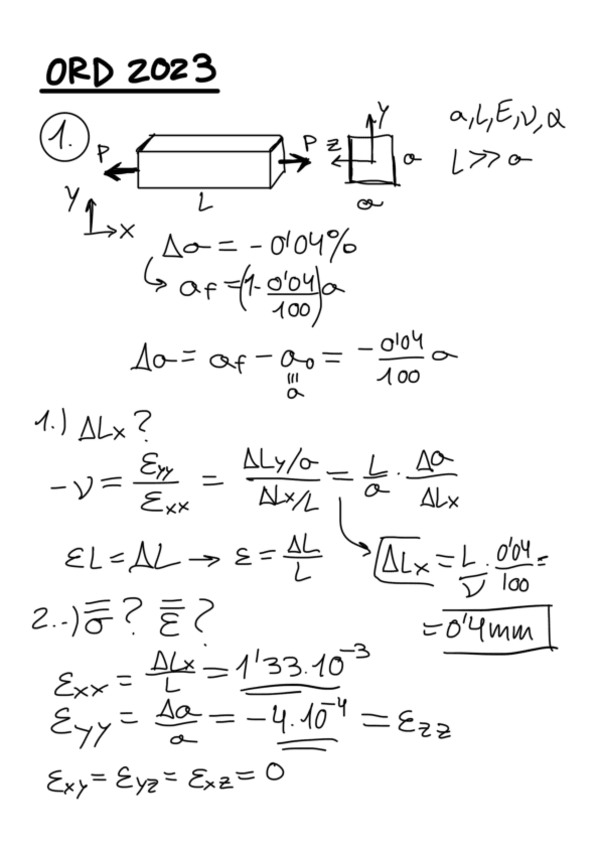 ORD 2023
1.
P P Z Y a a, L, E, ν, α
L L >> a
Y X a
Δa = - 0'04%
↳ af = (1 - 0'04/100) a
Δa = af - a₀ = - 0'04/100 a
≡ a
1.) ΔLx?
-ν = εyy/εxx = (ΔLy/a)/(ΔLx/L) = L/a · Δa/ΔLx
εL = ΔL → ε = ΔL/L
ΔLx = L/ν · 0'04/100 =
= 0'4mm
2.-) σ? ε?
εxx = ΔLx/L = 1'33.10⁻³
εyy = Δa/a = -4.10⁻⁴ = εzz
εxy = εyz = εxz = 0